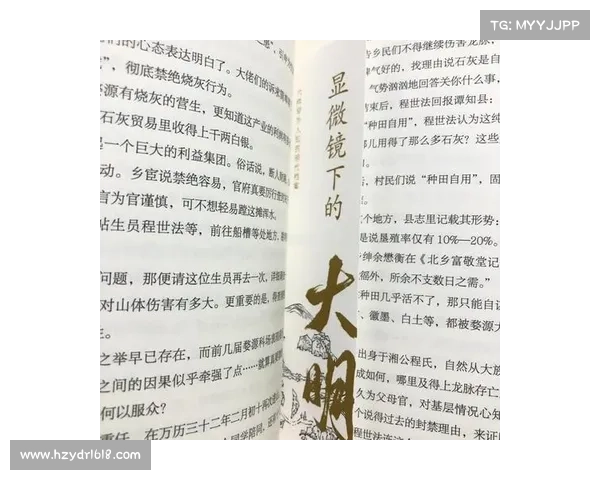 TG: MYYJJPP
们的心态表达明白了。大佬们的诉求
，彻底禁绝烧灰行为。
源有烧灰的营生，更知道这产业的利
石灰贸易里收得上千两白银。
一个巨大的利益集团。俗话说，断人
动。乡宦说禁绝容易，官府真要厉行
言为官谨慎，可不想轻易蹚这摊浑水。
生员程世法等，前往船槽等处地方，
问题，那便请这位生员再去一次，详细
对山体伤害有多大。更重要的是，
之举早已存在，而前几届婺源科场
之间的因果似乎牵强了点……就算
何以服众？
责任，在万历三十二年二月初十再次
显微镜下的
大明
乡民们不得继续伤害龙脉，
脾气好的，找理由说石灰是
气势汹汹地回答关你什么事，
结束后，程世法回报谭知县：
“种田自用”，程世法认为这纯
儿用得了那么多石灰？这些
，村民们说“种田自用”，固
个地方，县志里记载其形势：
是说垦殖率仅有10%—20%。
绅余懋衡在《北乡富敬堂记
福外，所余不支数日之需。”
种田几乎活不了，那只能自谋
、徽墨、白土等，都被婺源大
出身于湘公程氏，自然从大族
成如何，哪里及得上龙脉存亡
久为父母官，对基层情况心知
个说得过去的封禁理由，来证
www.hzydr1618.com